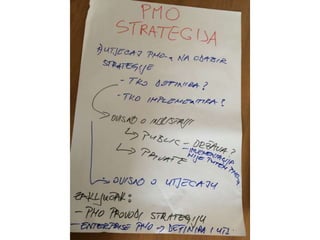 PMO
STRATEGIJA
1) UTJECAJ PMO-a NA ODABIR
STRATEGIJE
- TKO DEFINIRA?
- TKO IMPLEMENTIRA?
OVISNO O INDUSTRIJI
↳ PUBLIC - DRŽAVA?
IMPLEMENTACIJA
NIJE PUTEM PMO-a
↳ PRIVATE
OVISNO O UTJECAJU
ZAKLJUČAK:
- PMO PROVODI STRATEGIJU
- ENTERPRISE PMO → DEFINIRA I